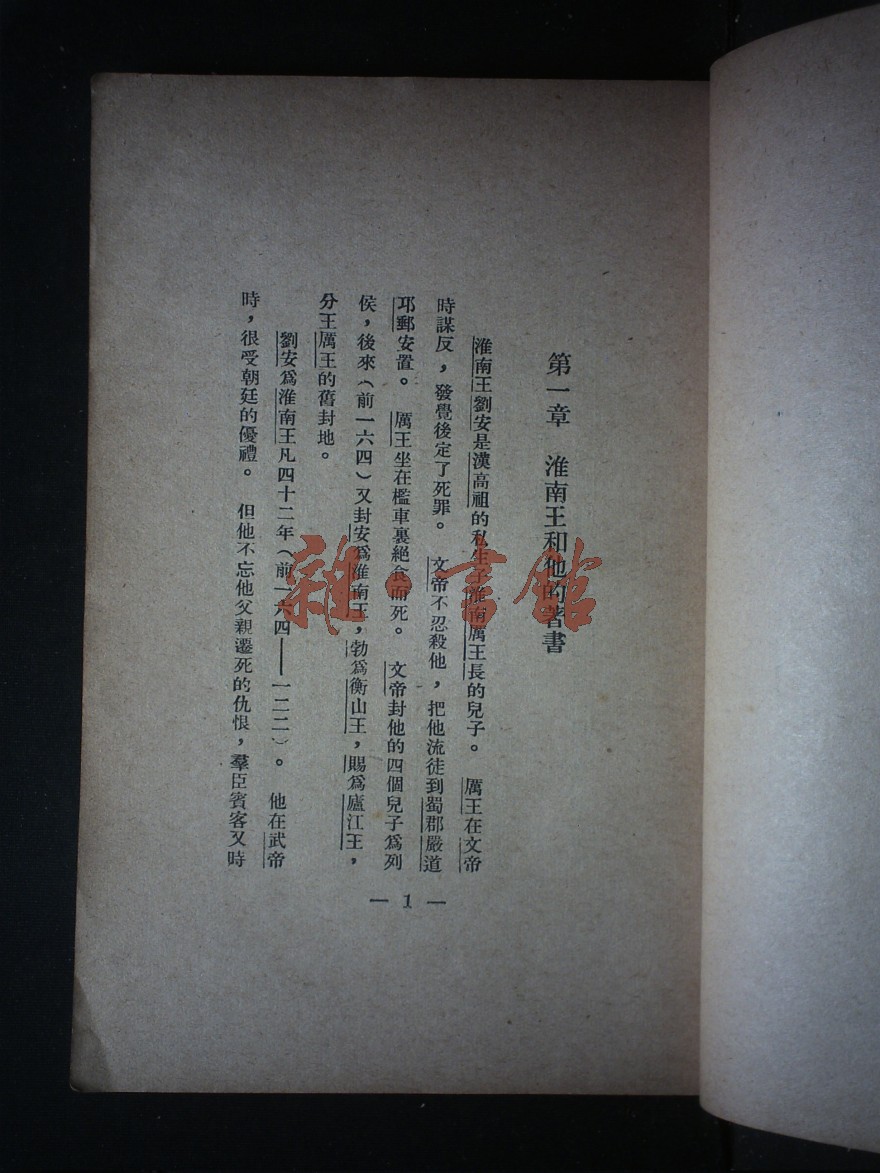 第一章　淮南王和他的著書
淮南王劉安是漢高祖的私生子淮南厲王長的兒子。　厲王在文帝
時謀反，發覺後定了死罪。　文帝不忍殺他，把他流徒到蜀郡嚴道
邛郵安置。　厲王坐在檻車裏絕食而死。　文帝封他的四個兒子爲列
侯，後來（前一六四）又封安爲淮南王，勃爲衡山王，賜爲廬江王，
分王厲王的舊封地。
劉安爲淮南王凡四十二年（前一六四——一二二）。　他在武帝
時，很受朝廷的優禮。　但他不忘他父親遷死的仇恨，羣臣賓客又時
— 1 —
雜·書館